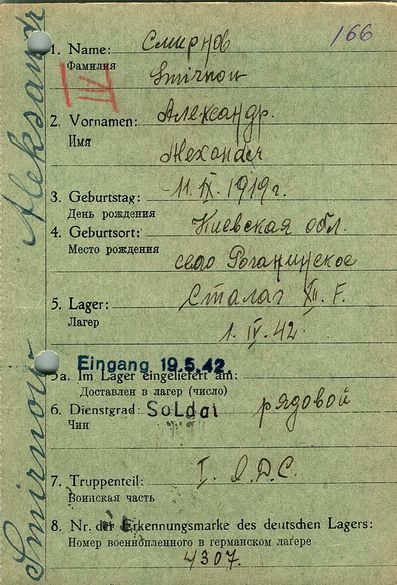 166
1. Name: Смирнов
Фамилия
Smirnow
IV
2. Vornamen: Александр.
Имя
3. Geburtstag: 11.IX.1919г.
День рождения
4. Geburtsort: Киевская обл.
Место рождения
село
5. Lager: Сталаг XII. F.
Лагер
1. IV. 42.
Eingang 19.5.42.
5a. Im Lager eingeliefert am:
Доставлен в лагер (число)
6. Dienstgrad: Soldat рядовой
Чин
7. Truppenteil: I. О.Д.С.
Воинская часть
8. Nr. der Erkennungsmarke des deutschen Lagers:
Номер военнопленного в германском лагере
4307.
Smirnow Aleksandr